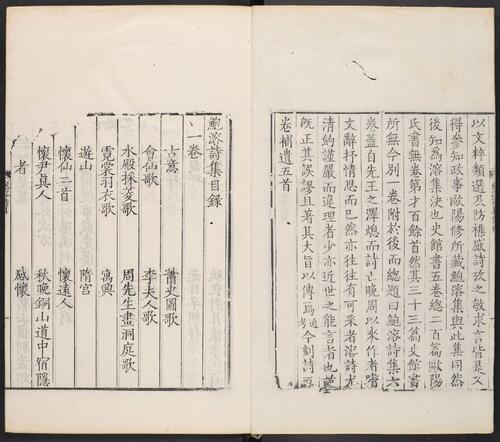 以文粹類選及防禦感詩攷之敏求言皆是又
得參知政事歐陽修所藏鮑溶集與此集同然
後知為溶集決也史館書五卷總二百篇歐陽
氏書無卷第才百餘首然其三十三篇史館書
所無今別一卷附於後而總題曰鮑溶詩集六
卷蓋自先王之澤熄而詩亡晚周以來作者嗜
文辭抒情思而已然亦往往有可采者溶詩尤
清約謹嚴而違理者少亦近世之能言者也
既正其誤謬且著其大旨以傳焉通考今刻詩五
卷補遺五首
鮑溶詩集目録
一卷
古意 蕭史圖歌
會仙歌 李夫人歌
水殿採菱歌 周先生畫洞庭歌
霓裳羽衣歌 寓興
遊山 隋宮
懷仙二首 懷遠人
懷尹真人 秋晚銅山道中宿隱
者 感懷